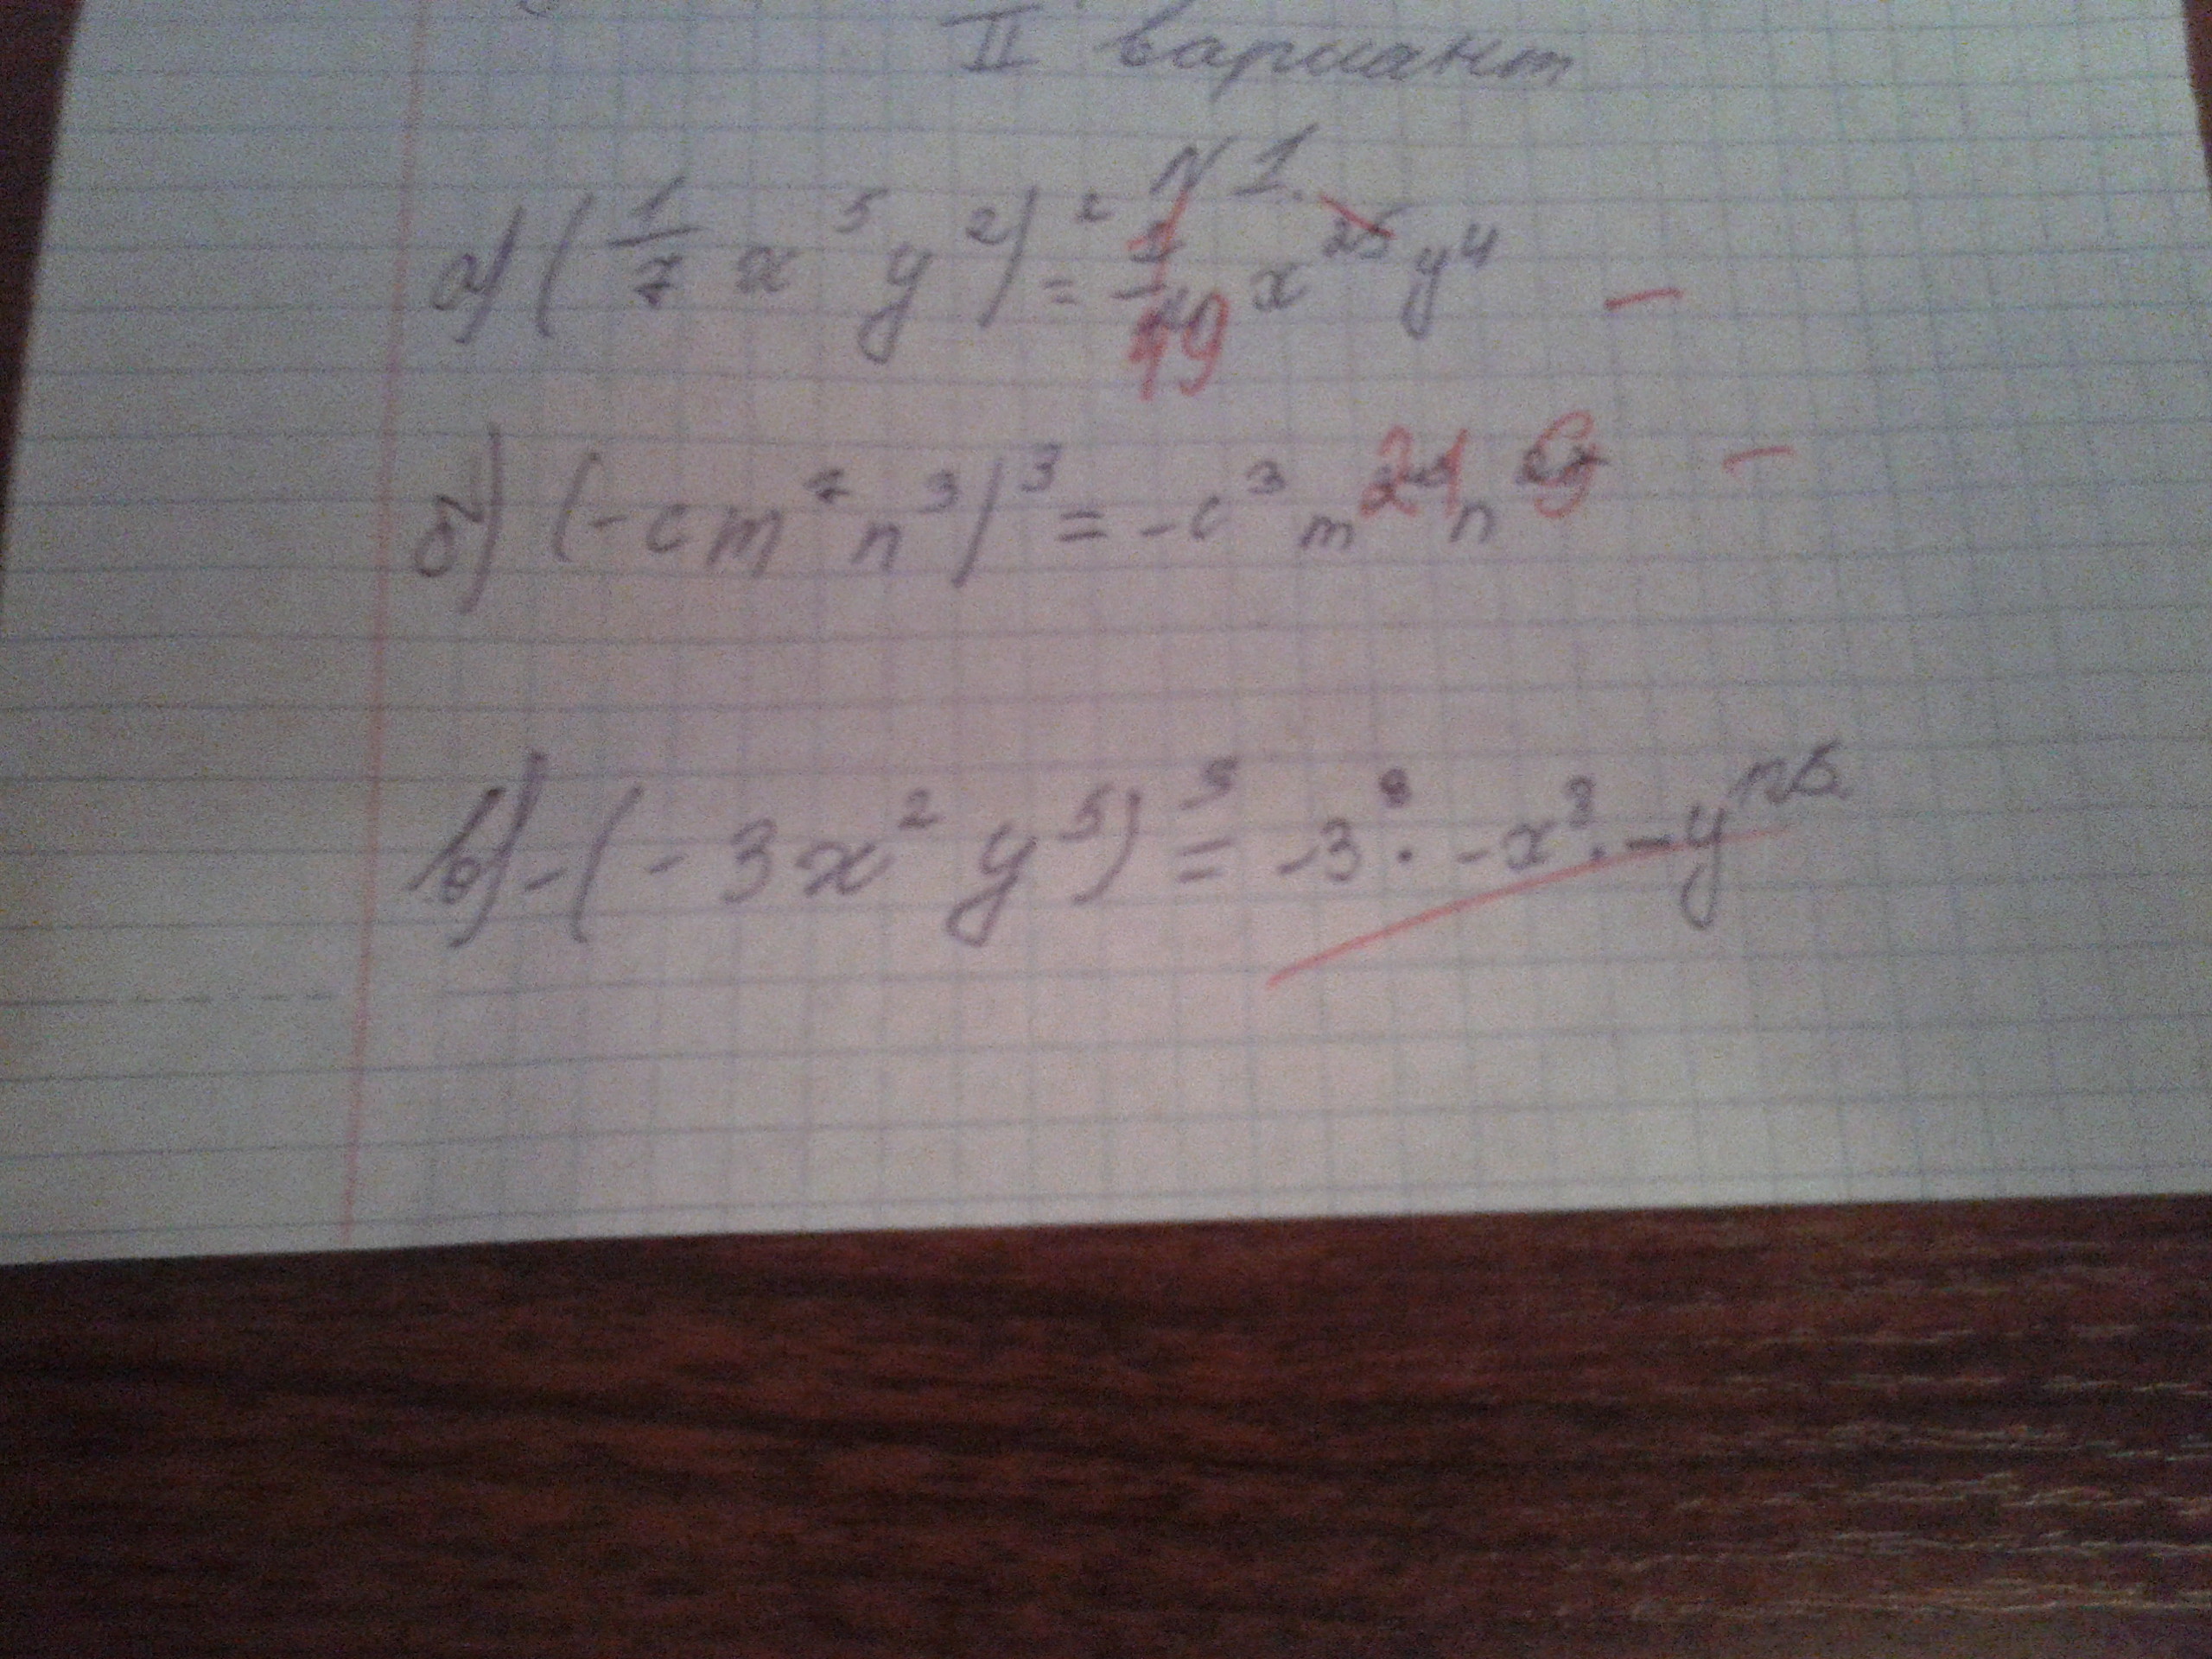 II вариант
N 1.
а) (1/7 x⁵y²)² = 1/49 x²⁵y⁴ –
б) (-cm⁷n³)³ = -c³m²¹n⁹ –
в) -(-3x²y⁵)³ = -3³·-x⁸·-y